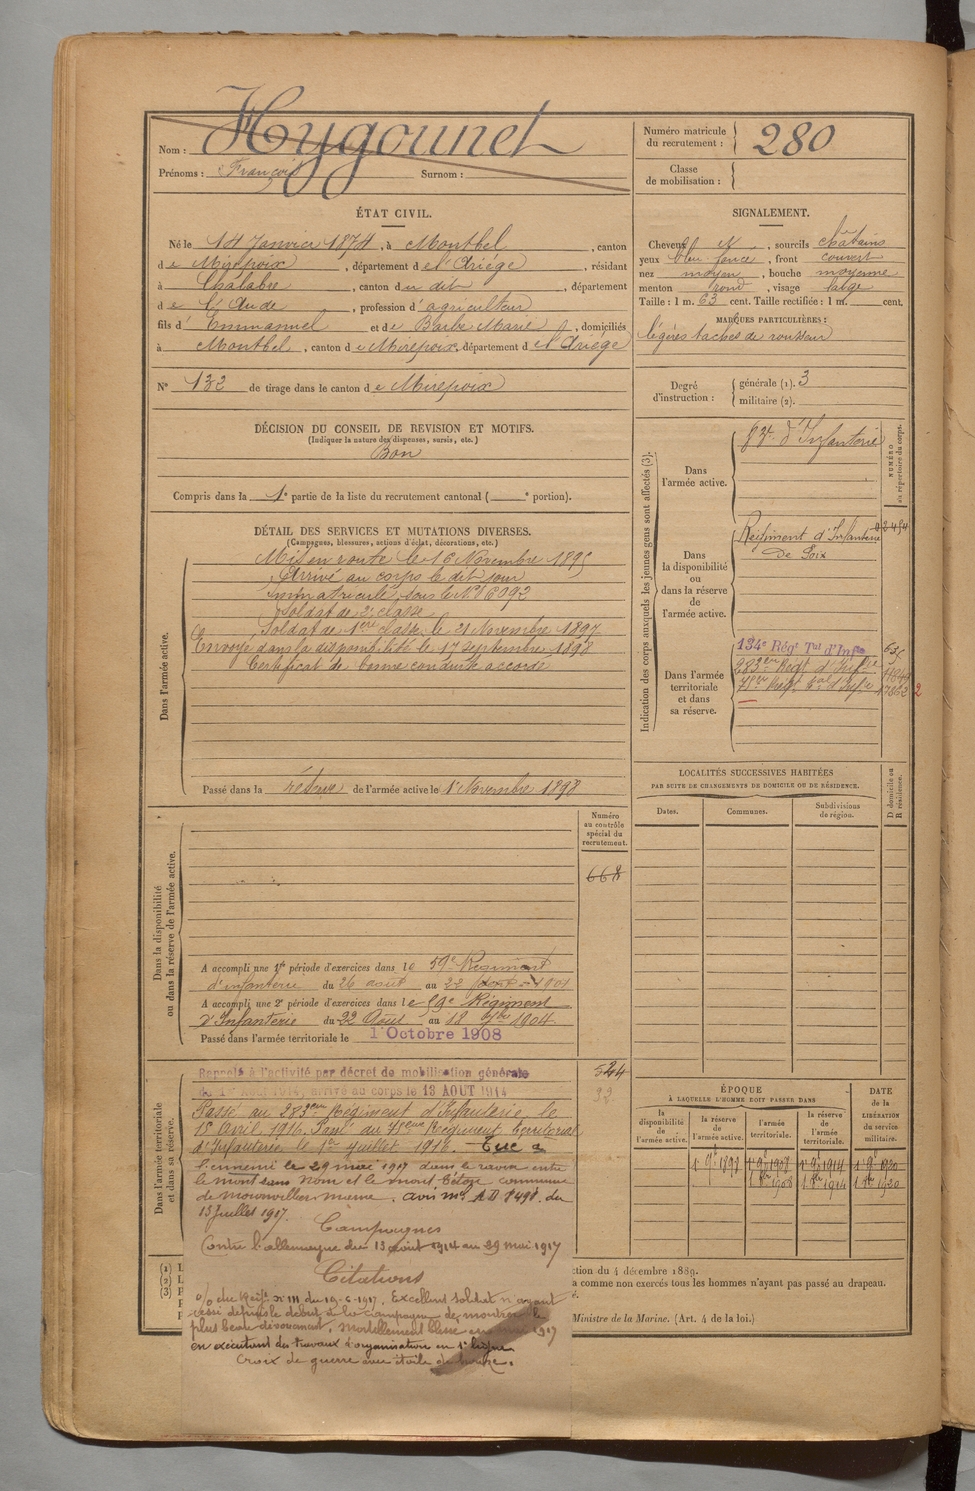 Nom : Hygounet
Prénoms : François Surnom :
Numéro matricule du recrutement : 280
Classe de mobilisation :
ÉTAT CIVIL.
Né le 14 Janvier 1874, à Montbel, canton
de Mirepoix, département de l'Ariége, résidant
à Chalabre, canton du dit, département
de l'Aude, profession d'agriculteur
fils d'Emmanuel et de Barbe Marie, domiciliés
à Montbel, canton de Mirepoix, département de l'Ariége
N° 132 de tirage dans le canton de Mirepoix
SIGNALEMENT.
Cheveux N, sourcils châtains
yeux bleu foncé, front couvert
nez moyen, bouche moyenne
menton rond, visage large
Taille : 1 m. 63 cent. Taille rectifiée : 1 m. cent.
MARQUES PARTICULIÈRES :
légères taches de rousseur
Degré d'instruction : générale (1). 3
militaire (2).
DÉCISION DU CONSEIL DE REVISION ET MOTIFS.
(Indiquer la nature des dispenses, sursis, etc.)
Bon
Compris dans la 1e partie de la liste du recrutement cantonal ( e portion).
DÉTAIL DES SERVICES ET MUTATIONS DIVERSES.
(Campagnes, blessures, actions d'éclat, décorations, etc.)
Dans l'armée active.
Mis en route le 16 Novembre 1895
Arrivé au corps le dit jour
Immatriculé sous le N° 6092
Soldat de 2e classe
Soldat de 1ere classe le 21 Novembre 1897
Envoyé dans la disponibilité le 17 septembre 1898
Certificat de bonne conduite accordé
Passé dans la réserve de l'armée active le 1er Novembre 1898
Indication des corps auxquels les jeunes gens sont affectés (3).
NUMÉRO au répertoire du corps.
Dans l'armée active.
83e d'Infanterie
Dans la disponibilité ou dans la réserve de l'armée active.
Régiment d'Infanterie
De Foix
Dans l'armée territoriale et dans sa réserve.
134e Régt Tal d'Infie
283eme Régt d'Infie
78eme Régt Tal d'Infie
LOCALITÉS SUCCESSIVES HABITÉES
PAR SUITE DE CHANGEMENTS DE DOMICILE OU DE RÉSIDENCE.
Dates. Communes. Subdivisions de région. D domicile ou R résidence.
Dans la disponibilité ou dans la réserve de l'armée active.
Numéro au contrôle spécial du recrutement.
668
A accompli une 1re période d'exercices dans le 59e Régiment
d'infanterie du 26 août au 22 1901
A accompli une 2e période d'exercices dans le 59e Régiment
D'Infanterie du 22 Août au 18 7bre 1904
Passé dans l'armée territoriale le 1er Octobre 1908
Dans l'armée territoriale et dans sa réserve.
Rappelé à l'activité par décret de mobilisation générale
du 1er Août 1914, arrivé au corps le 13 AOUT 1914
Passé au 283eme Régiment d'Infanterie le
18 Avril 1916. Passé au 78eme Régiment territorial
d'Infanterie le 1er Juillet 1916. Tué à
l'ennemi le 29 mai 1917 dans le ravin entre
le mont sans Nom et le mont commune
de même. avis me AD 8498 du
13 juillet 1917.
Campagnes
Contre l'allemagne du 13 août 1914 au 29 mai 1917
Citations
O/ du Régt n° 111 du 19-6-1917. Excellent soldat n'ayant
cessé depuis le début de la campagne de montrer le
plus beau dévouement. Mortellement blessé mai 1917
en exécutant des travaux d'organisation en 1e ligne
Croix de guerre avec étoile de bronze.
ÉPOQUE
À LAQUELLE L'HOMME DOIT PASSER DANS
la disponibilité de l'armée active. la réserve de l'armée active. l'armée territoriale. la réserve de l'armée territoriale.
DATE de la LIBÉRATION du service militaire.
(1) L
(2) L
(3) P
ction du 4 décembre 1889.
a comme non exercés tous les hommes n'ayant pas passé au drapeau.
Ministre de la Marine. (Art. 4 de la loi.)